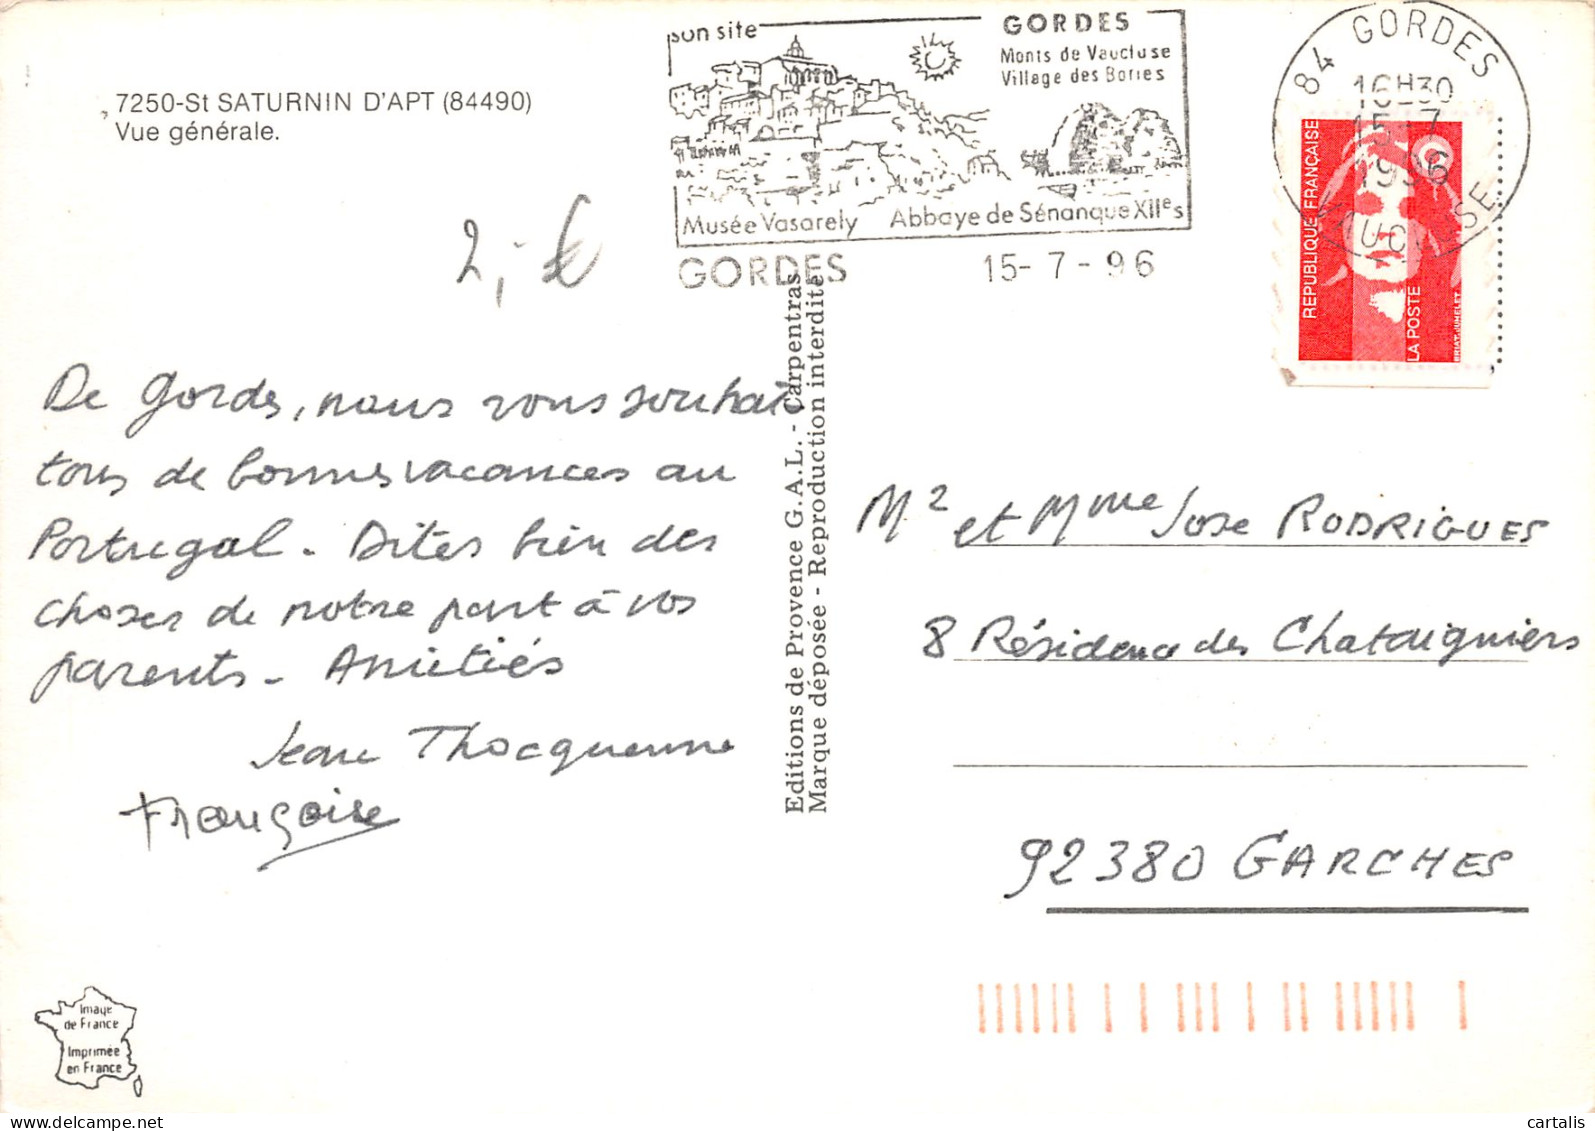 7250-St SATURNIN D'APT (84490)
Vue générale.
son site
GORDES
Monts de Vaucluse
Village des Bories
Musée Vasarely Abbaye de Sénanque XIIes
GORDES 15-7-96
84 GORDES
16H30
15-7
1996
VAUCLUSE
REPUBLIQUE FRANÇAISE
LA POSTE
BRIAT-JUMELET
2,- €
De Gordes, nous vous souhai
tons de bonnes vacances au
Portugal - Dites bien des
choses de notre part à vos
parents - Amitiés
Jean Thocquenne
Françoise
Editions de Provence G.A.L. - Carpentras
Marque déposée - Reproduction interdite
Mr et Mme Jose RODRIGUES
8 Résidence des Chataigniers
92380 GARCHES
Image
de France
Imprimée
en France
cartalis - delcampe.net